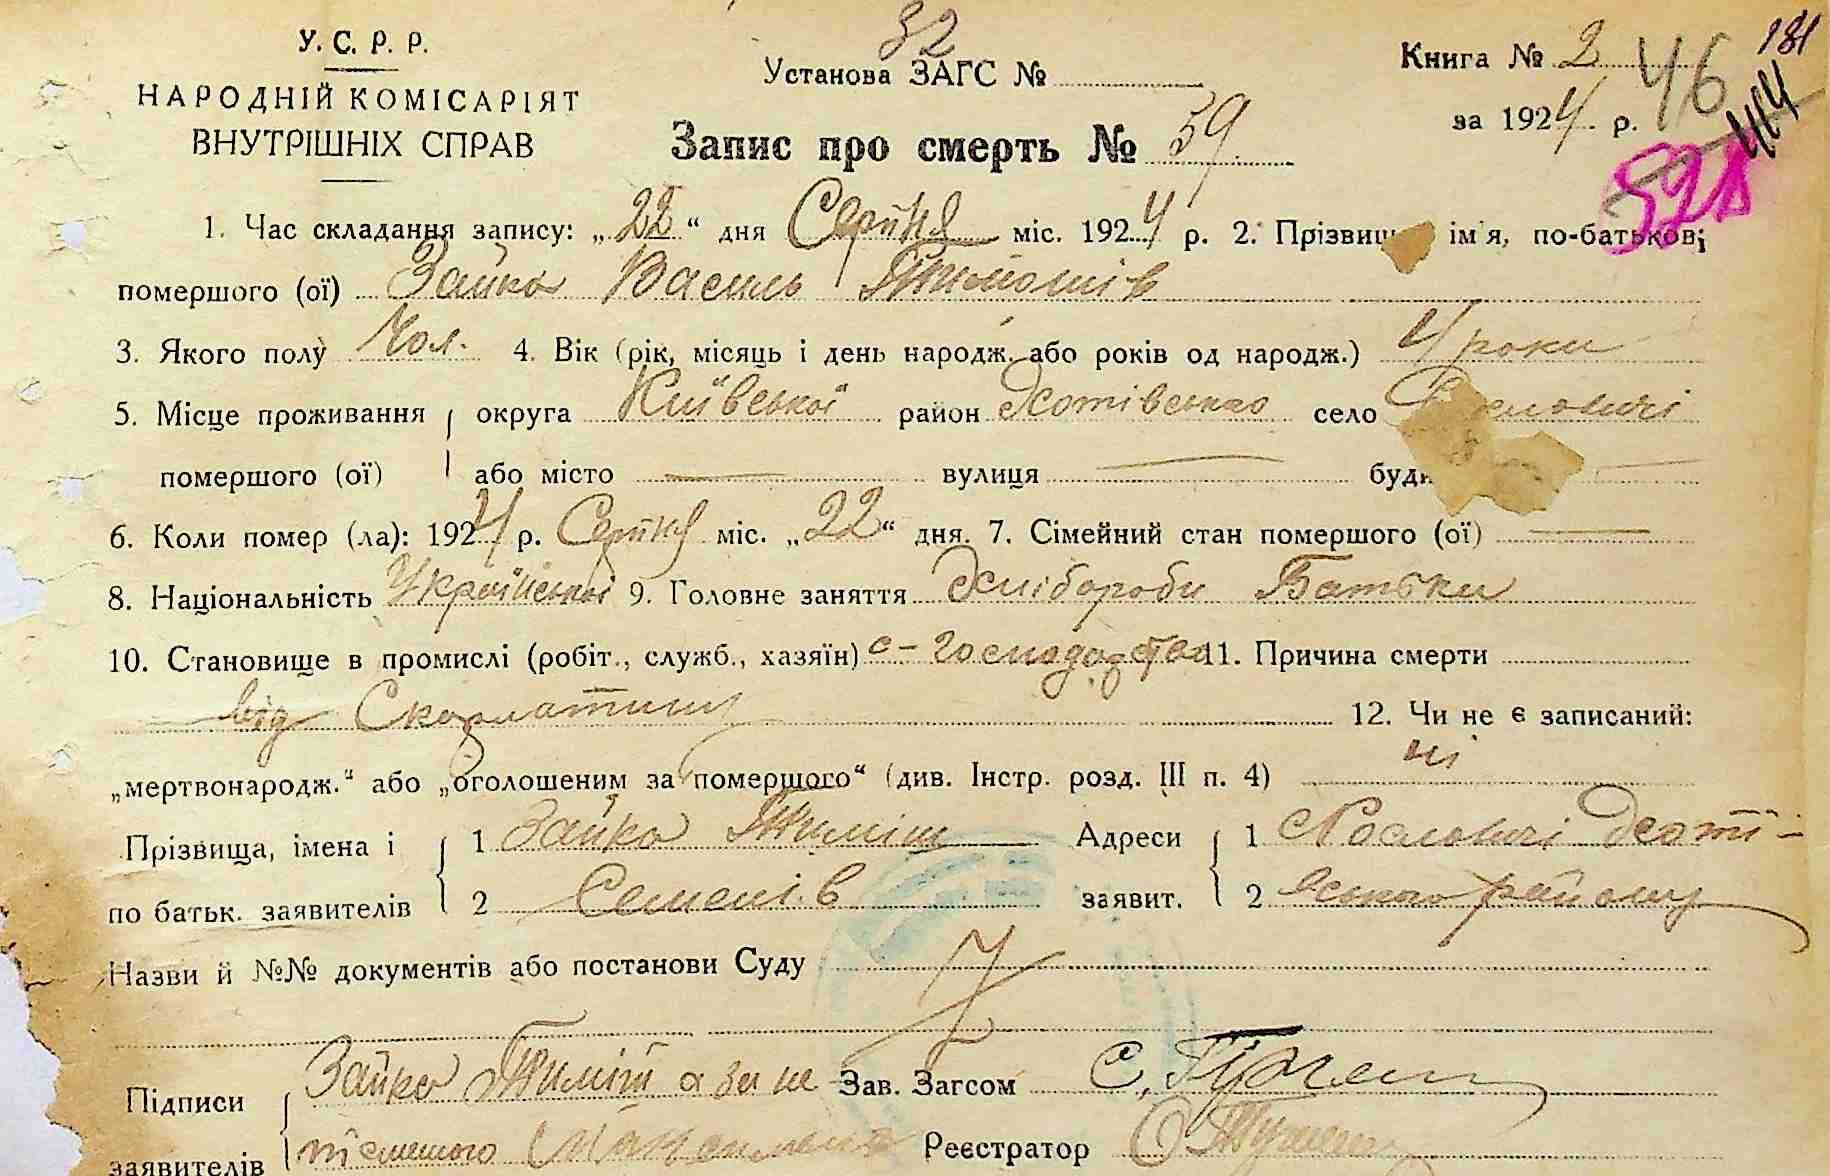 У. С. Р. Р.
НАРОДНІЙ КОМІСАРІЯТ
ВНУТРІШНІХ СПРАВ
32
Установа ЗАГС №
Запис про смерть № 59
Книга № 2
за 1924 р.
46
181
414
528
1. Час складання запису: „22“ дня Серпня міс. 1924 р. 2. Прізвищ ім'я, по-батькові
помершого (ої) Зайко Василь Тимошів
3. Якого полу Чол. 4. Вік (рік, місяць і день народж. або років од народж.) 4 роки
5. Місце проживання округа Київської район Хотівсько село
помершого (ої) або місто — вулиця — буди —
6. Коли помер (ла): 1924 р. Серпня міс. „22“ дня. 7. Сімейний стан помершого (ої) —
8. Національність Української 9. Головне заняття Хлібороби Батьки
10. Становище в промислі (робіт., служб., хазяїн) с-господарство 11. Причина смерти
від Скарлатини 12. Чи не є записаний:
„мертвонародж.“ або „оголошеним за помершого“ (див. Інстр. розд. III п. 4) ні
Прізвища, імена і 1 Зайко Тиміш Адреси 1 Хотів-
по батьк. заявителів 2 Семенів заявит. 2 ського району
Назви й №№ документів або постанови Суду
Підписи Зайко Тиміш а за не Зав. Загсом С.
заявителів письмено Реєстратор